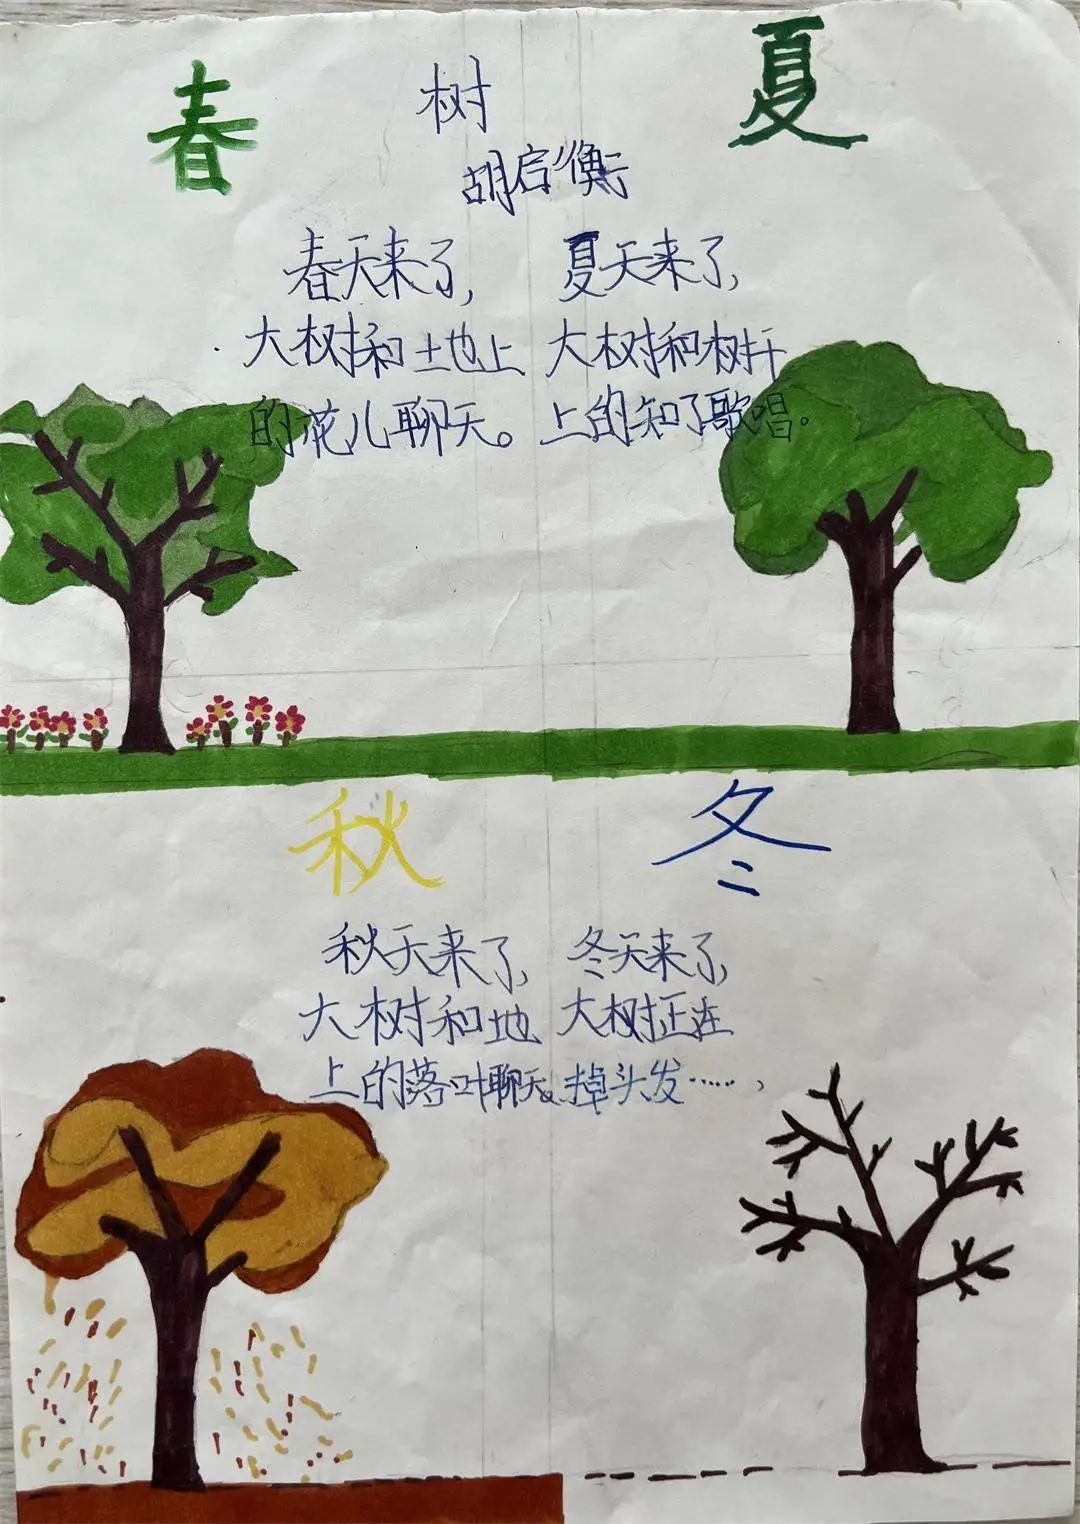 春
树
夏
胡启衡
春天来了,
大树和土地上
的花儿聊天。
夏天来了,
大树和树干
上的知了歌唱。
秋
冬
秋天来了,
大树和地
上的落叶聊天。
冬天来了,
大树正在
掉头发……,